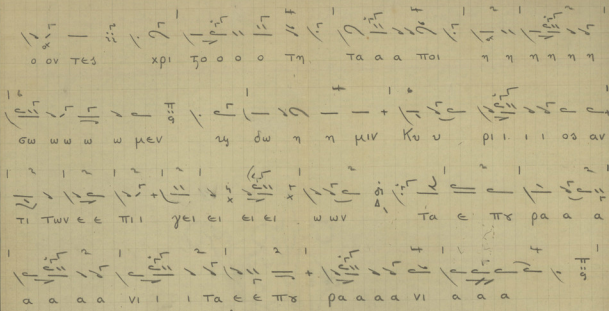 ο ον τες χρι ϛο ο ο ο τη τα α α ποι η η η η η
σω ω ω ω ω μεν τη δω η η μιν Κυ υ ρι ι ι ι ος αν
τι των ε ε πι ι γει ει ει ει ω ων τα ε πȣ ρα α α
α α α α νι ι ι τα ε ε πȣ ρα α α α νι α α α